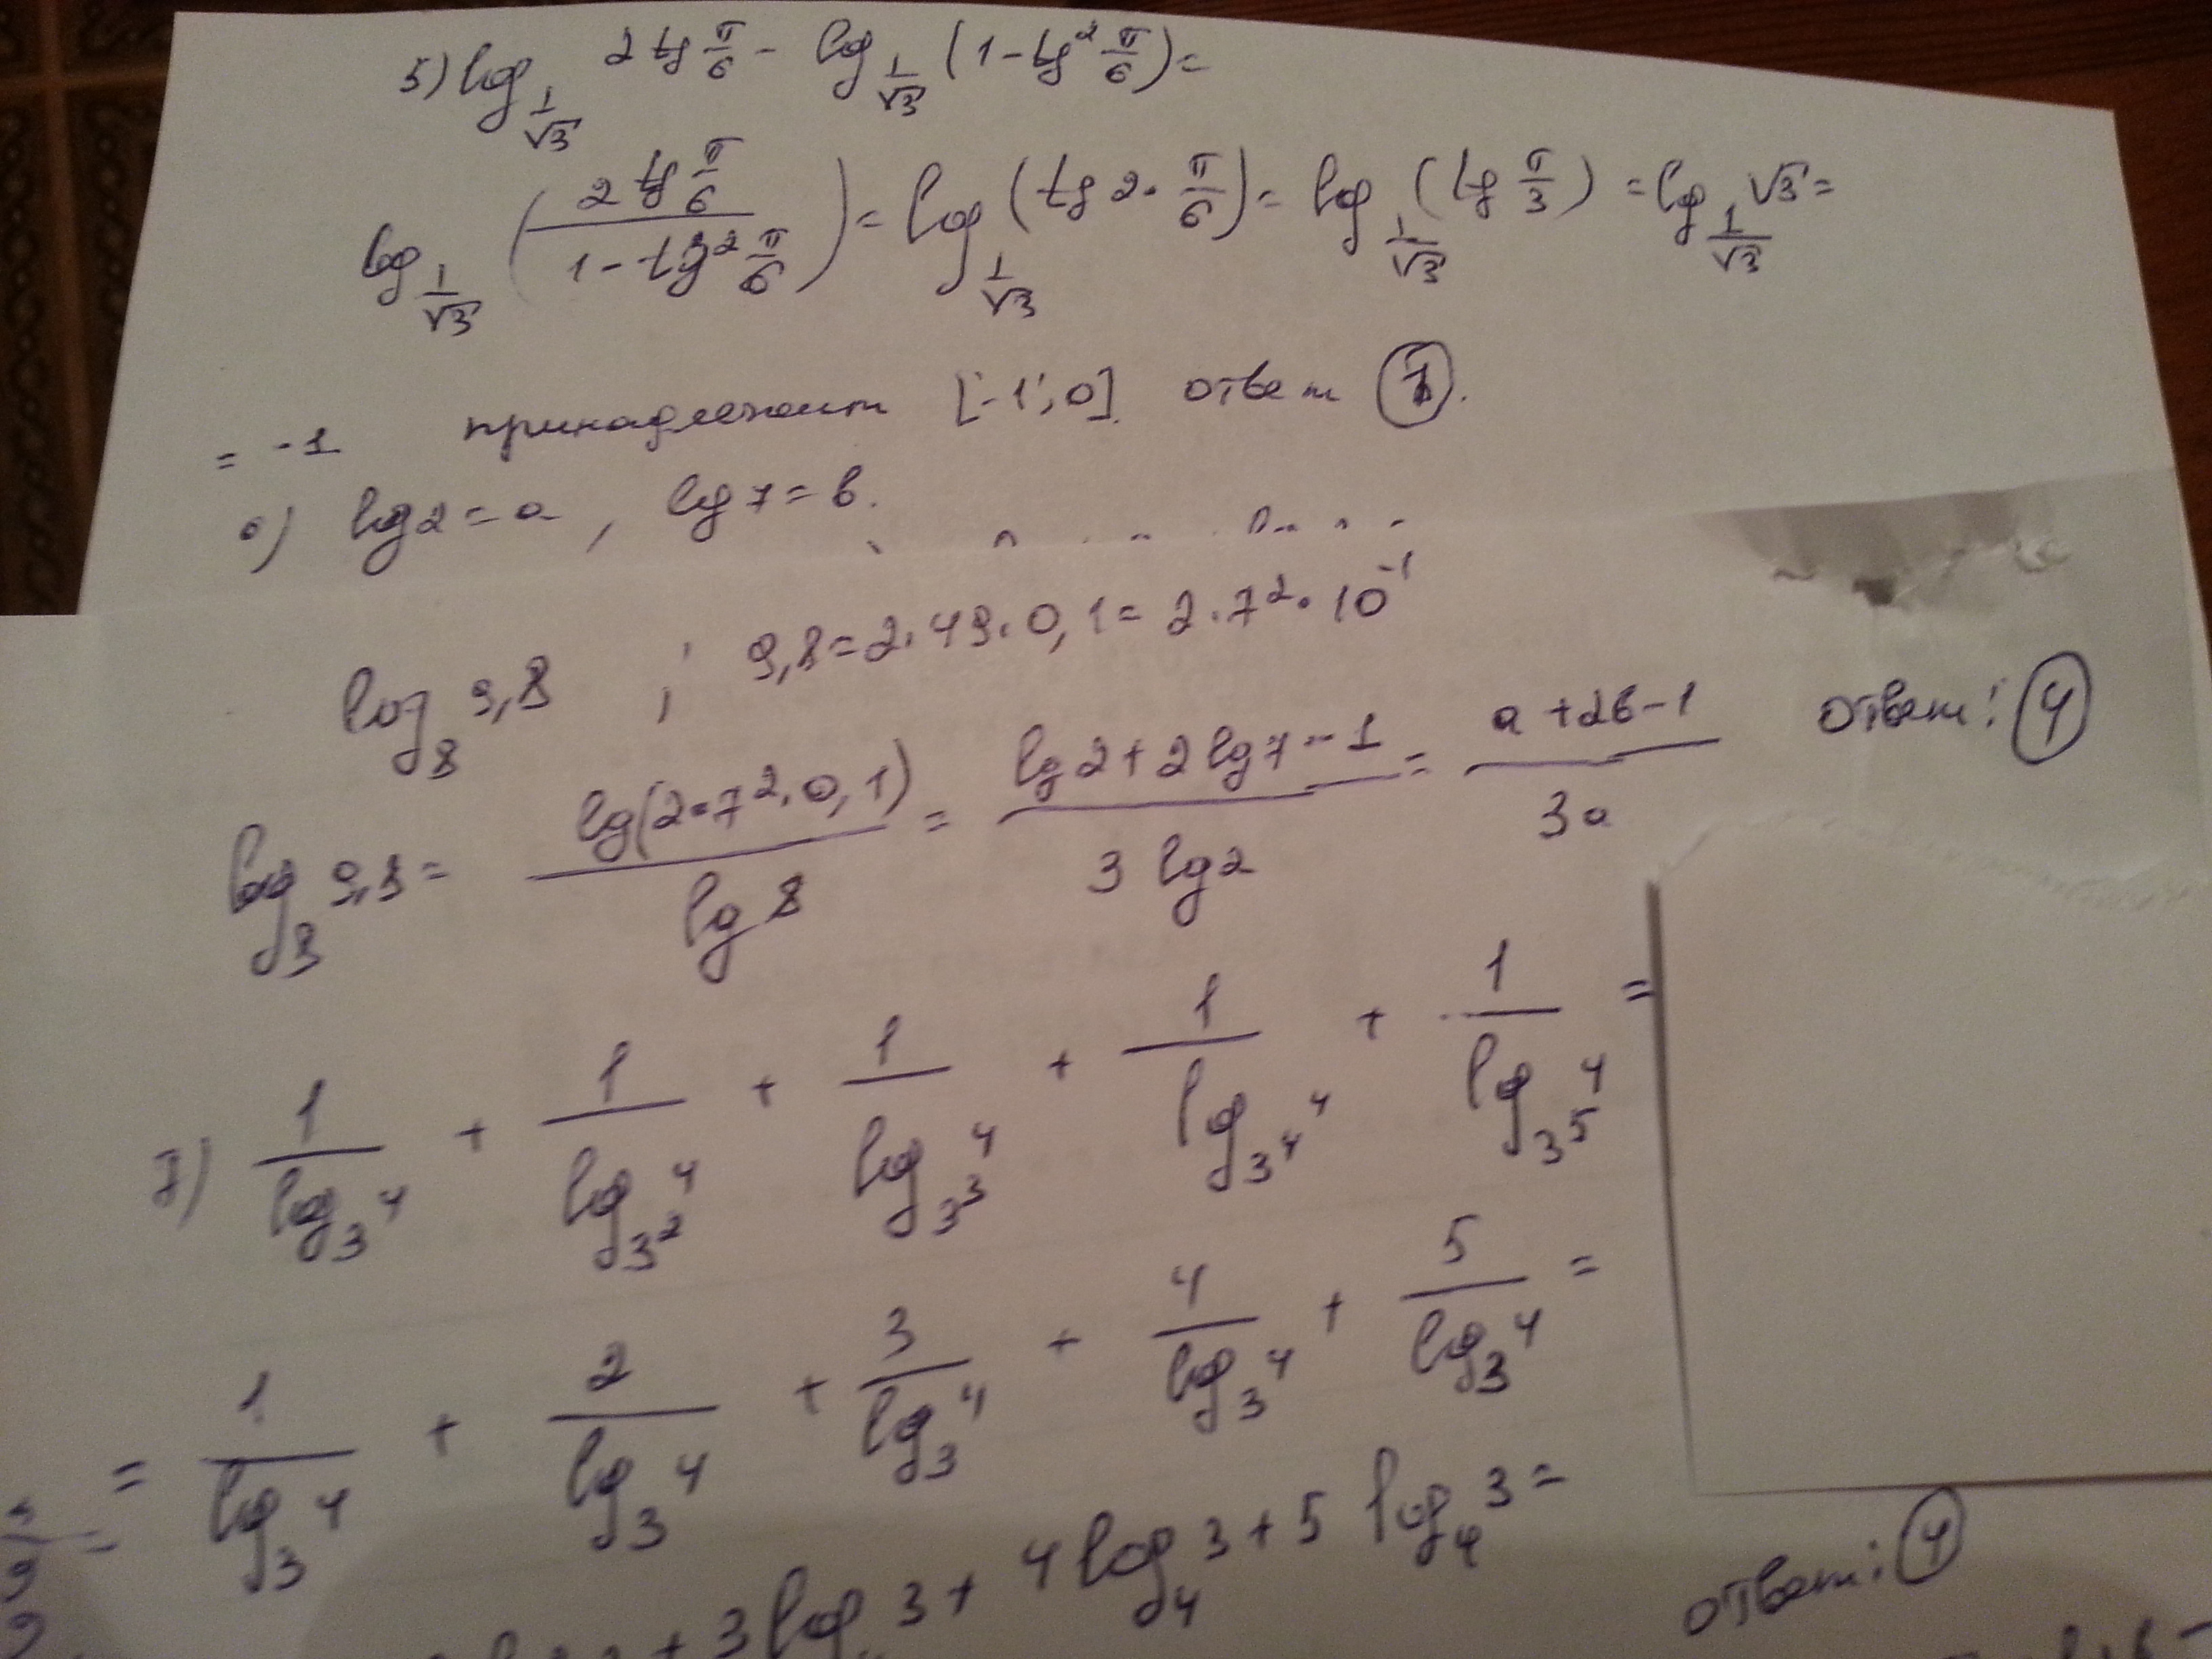 5) log_{1/√3} 2 tg π/6 - log_{1/√3} (1 - tg² π/6) =
log_{1/√3} (2 tg π/6 / (1 - tg² π/6)) = log_{1/√3} (tg 2 · π/6) = log_{1/√3} (tg π/3) = log_{1/√3} √3 =
= -1 принадлежит [-1; 0] ответ 1.
6) lg 2 = a, lg 7 = b.
log_8 9,8 ; 9,8 = 2 · 49 · 0,1 = 2 · 7² · 10^{-1}
log_8 9,8 = lg(2 · 7² · 0,1) / lg 8 = (lg 2 + 2 lg 7 - 1) / (3 lg 2) = (a + 2b - 1) / 3a ответ: 4
7) 1/log_3 4 + 1/log_{3²} 4 + 1/log_{3³} 4 + 1/log_{3⁴} 4 + 1/log_{3⁵} 4 =
= 1/log_3 4 + 2/log_3 4 + 3/log_3 4 + 4/log_3 4 + 5/log_3 4 =
+ 3 log 3 + 4 log_4 3 + 5 log_4 3 =
ответ: 4